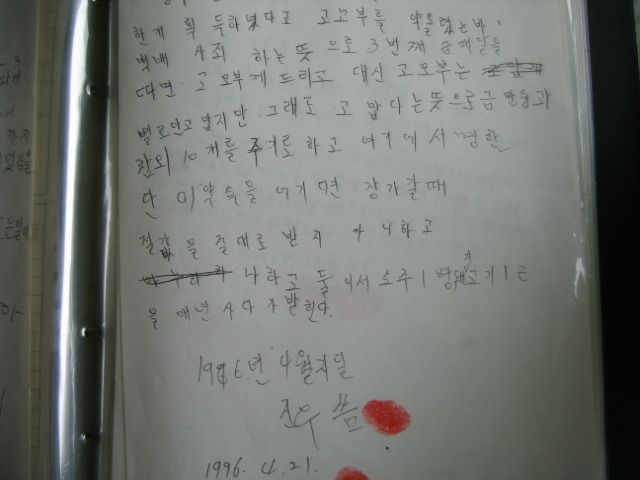 한게 획득하였다고 고모부를 약올렸는바
백배 사죄 하는 뜻으로 3번째 금메달을
따면 고모부께 드리고 대신 고모부는
별로안고맙지만 그래도 고맙다는뜻으로금만돈과
참외 10개를 주기로하고 여기에서 명한
단 이약속을 어기면 장가갈때
절값을 절대로 받지 아니하고
나하고 둘이서 소주1병 돼지고기1근
을 매년 사다 자발한다.
1996.년 4월지일
1996. 4. 21.